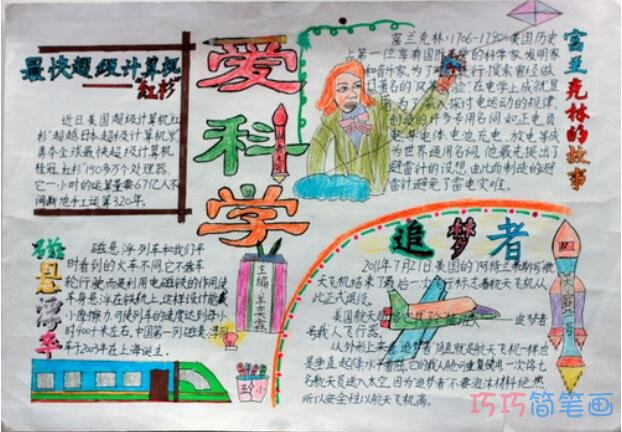 爱科学
最快超级计算机
"红杉"
近日美国超级计算机红
杉"超越日本超级计算机京
勇夺全球最快超级计算机
桂冠,红杉"150多万个处理器.
它一小时的运算量要67亿人不
间断地手工运算320年.
富兰克林的故事
富兰克林(1706-1790)美国历史
上第一位享有国际声誉的科学家,发明家
和音乐家,为了进行
过著名的"风筝实验".在电学上成就显
为了深入探讨电运动的规律,
创造的许多专用名词,如正电,负
电,导电体,电池,充电,放电等成
为世界通用名词,他最先提出了
避雷针的设想,由此而制造的避
雷针避免了雷电灾难.
悬浮车
磁悬浮列车和我们平
时看到的火车不同,它不靠车
轮行驶而是利用电磁铁的作用使
车身悬浮在铁轨上,这样设计能
小摩擦力,可使列车的速度达到每小
时400千米左右.中国第一列磁悬浮列
车于2003年在上海诞生.
主编
追梦者
2011年7月21日,美国的"阿特兰蒂斯"号航
天飞机结束了最后一次飞行标志着航天飞机从
此正式退役.
美国航天 追梦者
名载人飞行器.
从外形上来 追梦者"简直就是航天飞机一样也
是垂直起降水平着陆,它的载人舱可重复使用一次将七
名航天员送入太空.因为"追梦者"不要泡沫材料绝热,
所以安全性比航天飞机高.
巧巧简笔画